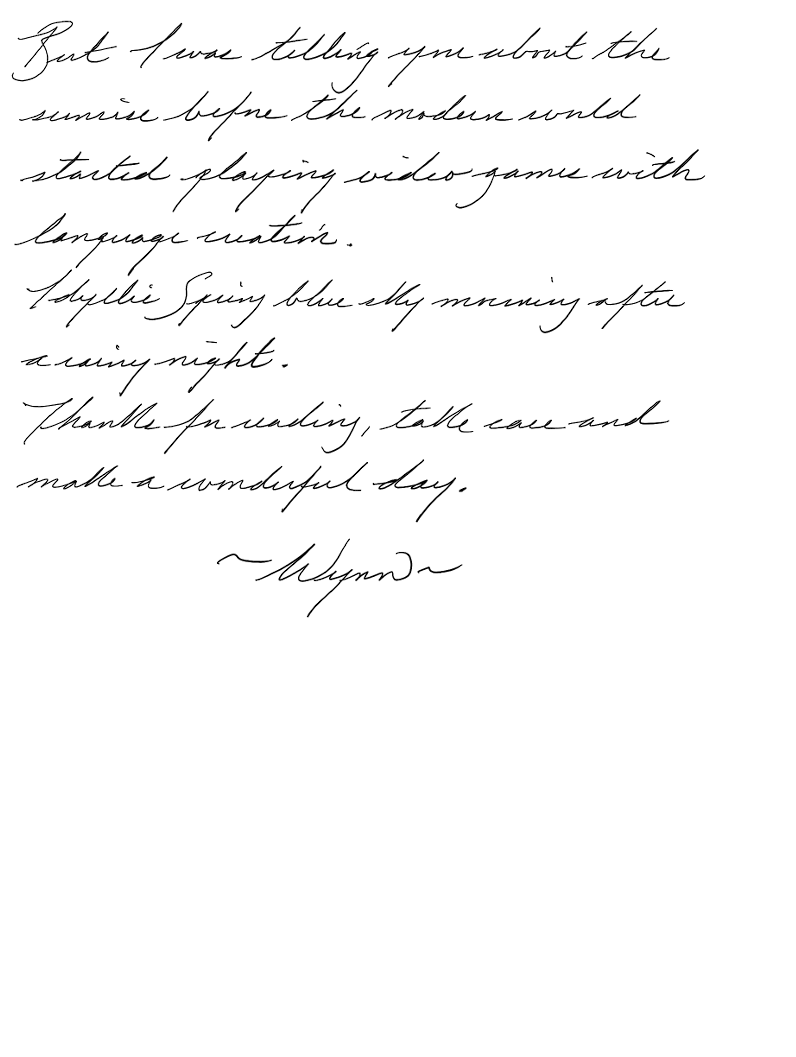 But I was telling you about the
sunrise before the modern world
started playing video games with
language creation.
Idyllic Spring blue sky morning after
a rainy night.
Thanks for reading, take care and
make a wonderful day.
~Wynn~